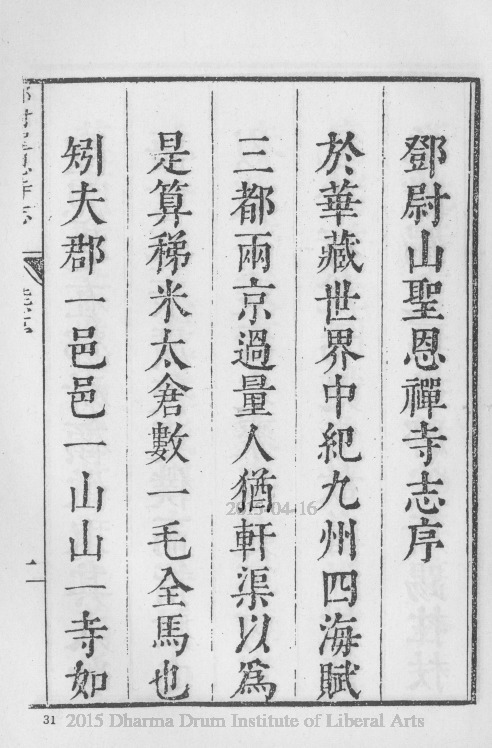 鄧尉山聖恩禪寺志序
於華藏世界中紀九州四海賦
三都兩京過量人猶軒渠以爲
是算稊米太倉數一毛全馬也
矧夫郡一邑邑一山山一寺如
一
2015-04-16
31 2015 Dharma Drum Institute of Liberal Arts